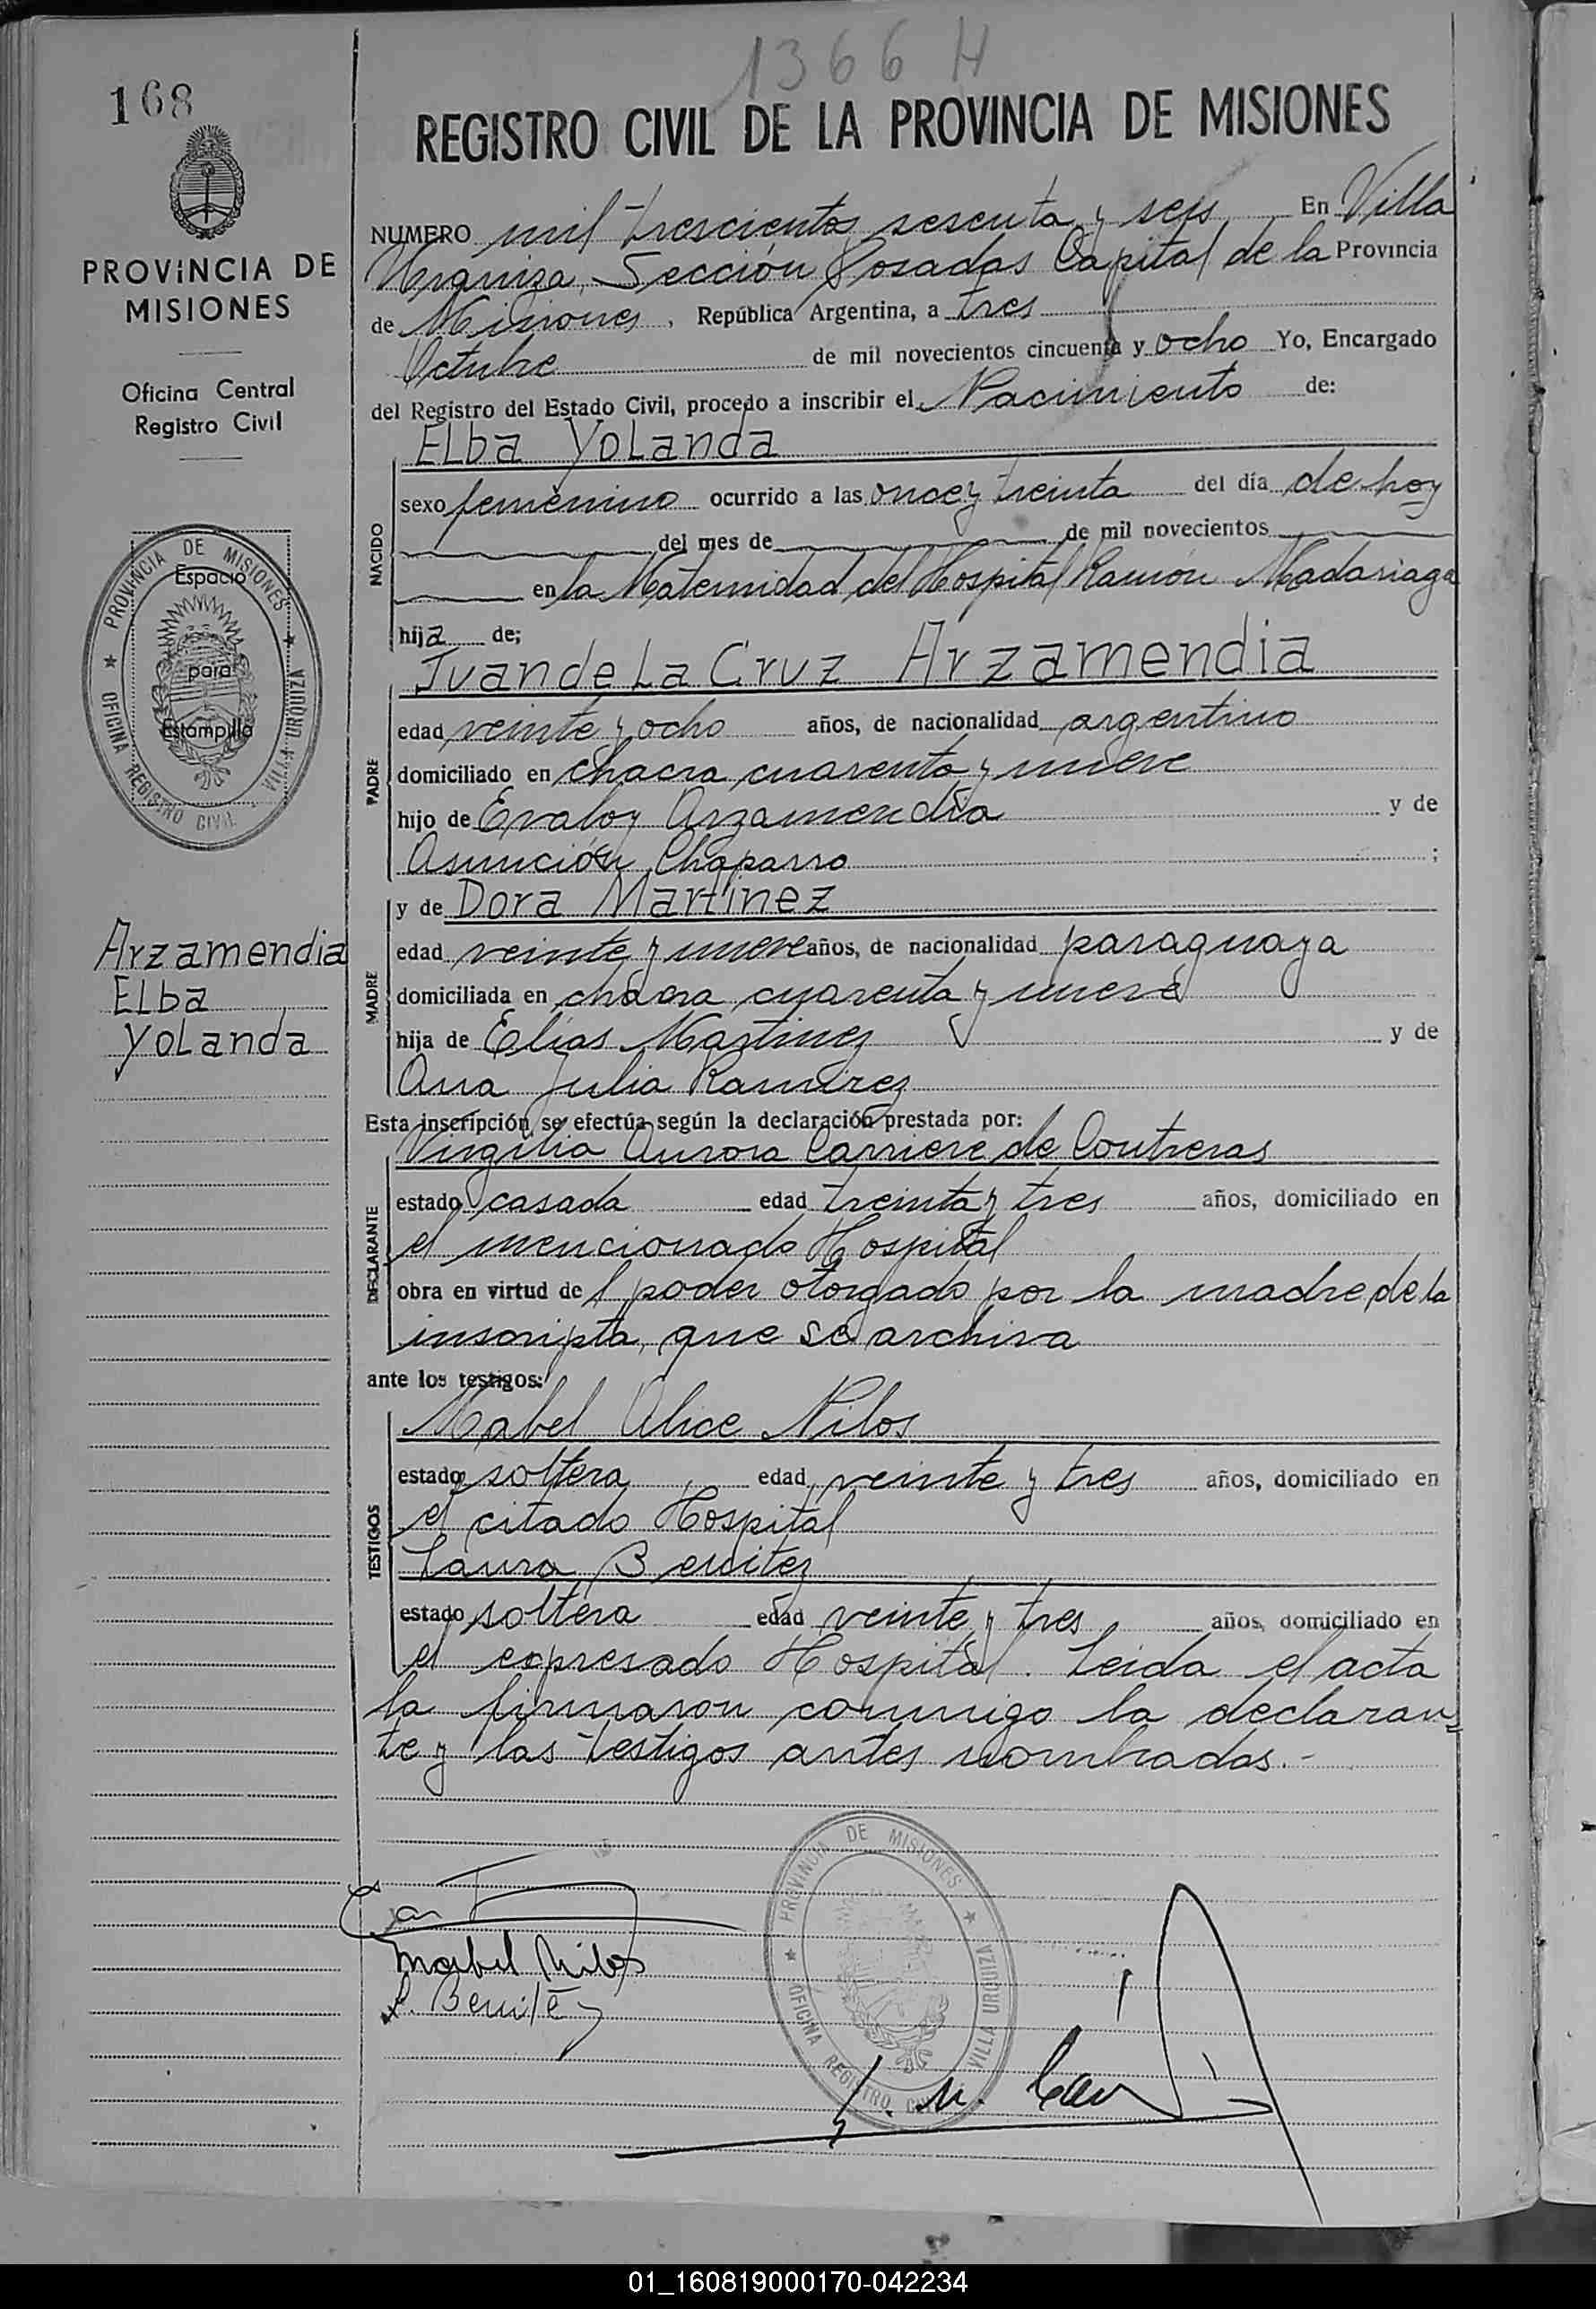 1366 H
168
REGISTRO CIVIL DE LA PROVINCIA DE MISIONES
PROVINCIA DE
MISIONES
Oficina Central
Registro Civil
NUMERO mil trescientos sesenta y seis En Villa
Urquiza, Sección Posadas Capital de la Provincia
de Misiones, República Argentina, a tres
Octubre de mil novecientos cincuenta y ocho Yo, Encargado
del Registro del Estado Civil, procedo a inscribir el Nacimiento de:
NACIDO
Elba Yolanda
sexo femenino ocurrido a las once y treinta del día de hoy
del mes de de mil novecientos
en la Maternidad del Hospital Ramón Madariaga
hija de;
Juan de La Cruz Arzamendia
PADRE
edad veinte y ocho años, de nacionalidad argentino
domiciliado en chacra cuarenta y nueve
hijo de Arzamendia y de
Asunción Chaparro ;
MADRE
y de Dora Martinez
edad veinte y nueve años, de nacionalidad paraguaya
domiciliada en chacra cuarenta y nueve
hija de Elías Martinez y de
Ana Julia Ramirez
Esta inscripción se efectúa según la declaración prestada por:
DECLARANTE
Virgilia Aurora Carriere de Contreras
estado casada edad treinta y tres años, domiciliado en
el mencionado Hospital
obra en virtud de l poder otorgado por la madre de la
inscripta, que se archiva
ante los testigos:
TESTIGOS
Mabel Alice Nilos
estado soltera edad veinte y tres años, domiciliado en
el citado Hospital
Laura Benitez
estado soltera edad veinte y tres años, domiciliado en
el expresado Hospital. Leida el acta
la firmaron conmigo la declaran=
te y las testigos antes nombradas.-
PROVINCIA DE MISIONES
OFICINA REGISTRO CIVIL VILLA URQUIZA
Espacio
para
Estampilla
Arzamendia
Elba
Yolanda
Mabel Nilos
L. Benitez
PROVINCIA DE MISIONES
OFICINA REGISTRO CIVIL VILLA URQUIZA
01_160819000170-042234